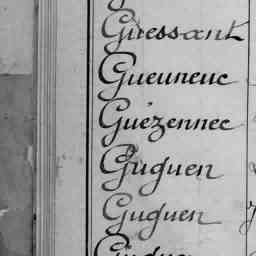 Guessant
Gueuneuc
Guézennec
Guguen
Guguen